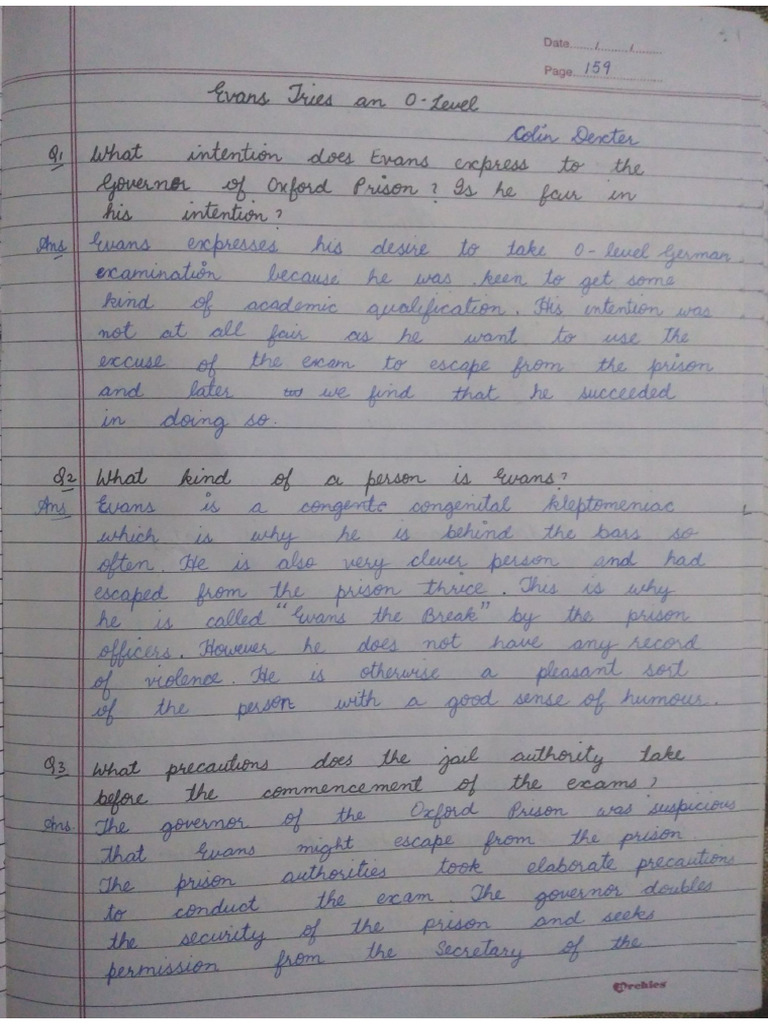 Date....../....../......
Page. 159
Evans Tries an O-Level
Colin Dexter
Q1 What intention does Evans express to the
Governor of Oxford Prison? Is he fair in
his intention?
Ans Evans expresses his desire to take O-level German
examination because he was keen to get some
kind of academic qualification. His intention was
not at all fair as he want to use the
excuse of the exam to escape from the prison
and later we find that he succeeded
in doing so.
Q2 What kind of a person is Evans?
Ans Evans is a congente congenital kleptomeniac
which is why he is behind the bars so
often. He is also very clever person and had
escaped from the prison thrice. This is why
he is called "Evans the Break" by the prison
officers. However he does not have any record
of violence. He is otherwise a pleasant sort
of the person with a good sense of humour.
Q3 What precautions does the jail authority take
before the commencement of the exams?
Ans. The governor of the Oxford Prison was suspicious
that Evans might escape from the prison
The prison authorities took elaborate precautions
to conduct the exam. The governor doubles
the security of the prison and seeks
permission from the Secretary of the
Archies